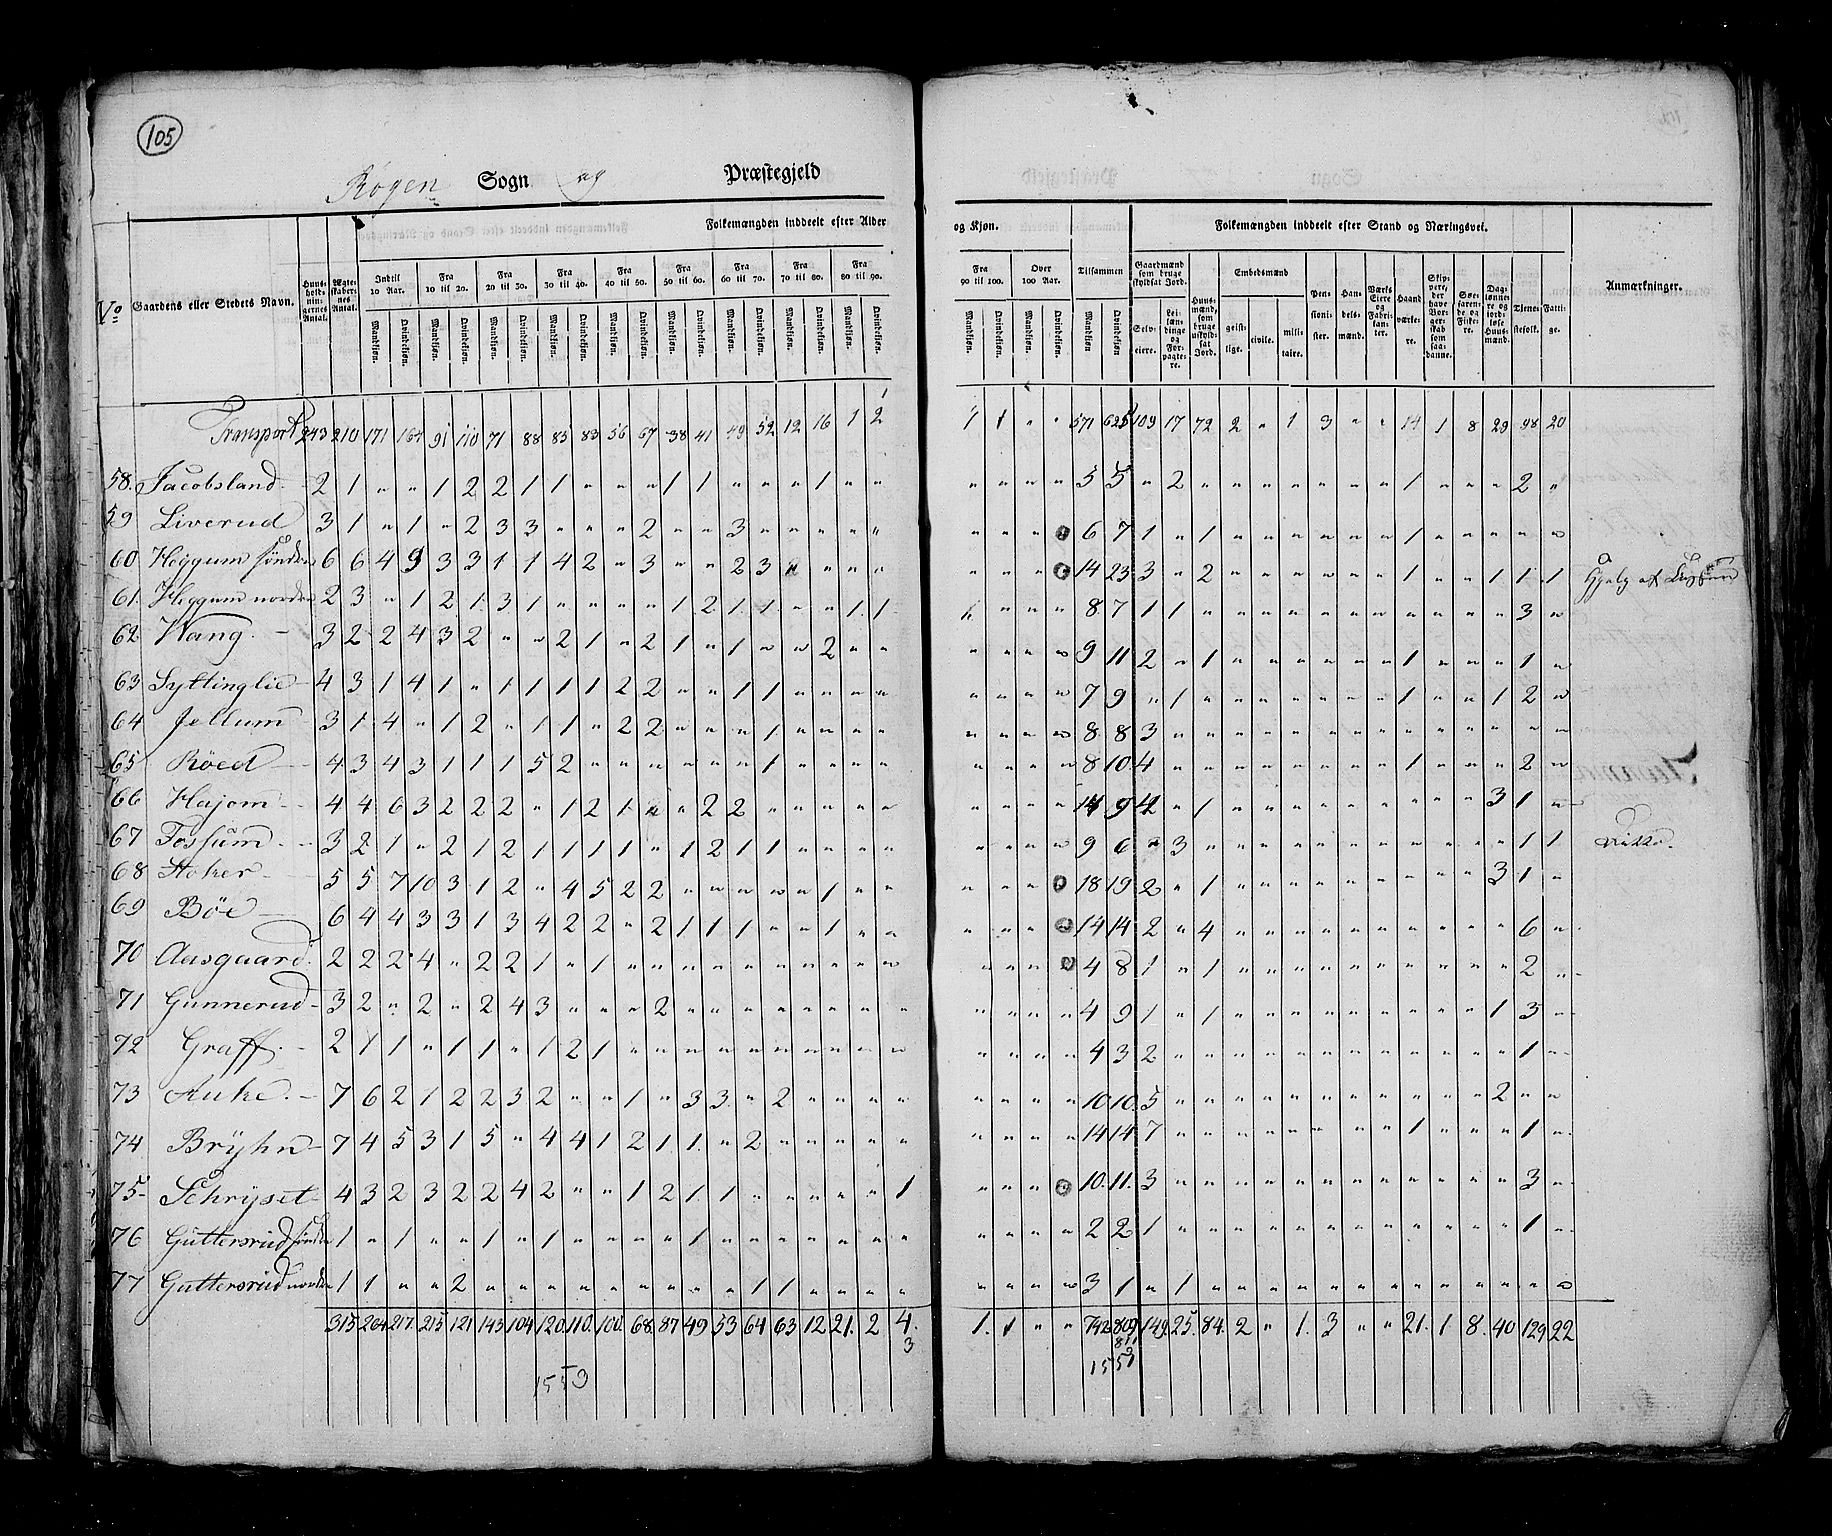 105
Røgen Sogn og Præstegjeld
Folkemængden inddeelt efter Alder og Kjøn. Folkemængden inddeelt efter Stand og Næringsvei.
No Gaardens eller Stedets Navn. Huus-holdnin-gernes Antal. Ægte-skaber-nes Antal. Indtil 10 Aar. Fra 10 til 20. Fra 20 til 30. Fra 30 til 40. Fra 40 til 50. Fra 50 til 60. Fra 60 til 70. Fra 70 til 80. Fra 80 til 90. Fra 90 til 100. Over 100 Aar. Tilsammen Gaardmænd som bruge skyldsat Jord. Huus-mænd, som bruge uskyld-sat Jord. Embedsmænd Pen-sioni-ster. Han-dels-mænd. Værks Eiere og Fabri-lan-ter. Haand værke-re. Skip-pere, der have Bor-ger-skab som saa-danne. Søe-faren-de og Fiske-re. Dag-lønne-re og jord-løse Huus-mænd. Tjene-stefolk. Fatti-ge. Anmærkninger.
Mandkjøn. Qvindekjøn. Mandkjøn. Qvindekjøn. Mandkjøn. Qvindekjøn. Mandkjøn. Qvindekjøn. Mandkjøn. Qvindekjøn. Mandkjøn. Qvindekjøn. Mandkjøn. Qvindekjøn. Mandkjøn. Qvindekjøn. Mandkjøn. Qvindekjøn. Mandkjøn. Qvindekjøn. Mandkjøn. Qvindekjøn. Mandkjøn. Qvindekjøn Selv-eiere. Lei-læn-dinge og For-pagte-re. geist-lige. civile. mili-taire.
Transport 243 210 171 164 91 110 71 88 85 83 56 67 38 41 49 52 12 16 1 2 1 1 " " 571 625 109 17 72 2 " 1 3 " " 14 1 8 29 98 20
58. Jacobsland 2 1 " " 1 2 2 1 1 " " " 1 1 " " " 1 " " " " " " 5 5 " 2 " " " " " " " 1 " " " 2 "
59 Liverud 3 1 " 1 " 2 3 3 " " " 2 " " 3 " " " " " " " " " 6 7 1 " 1 " " " " " " 1 " " " " "
60 Høggum søndre 6 6 4 9 3 3 1 1 4 2 " 3 " " 2 3 " " " " " " " " 14 23 3 " 2 " " " " " " 1 " " 1 1 1 Hjelp af
61. Høggum nordre 2 3 " 1 2 1 3 1 " " " " 1 2 1 1 " " 1 1 " " " 8 7 1 1 " " " " " " " " " " " 3 "
62 Wang. 3 2 2 4 3 2 " " 2 1 " 2 1 " 1 " " 2 " " " " " " 9 11 2 " 1 " " " " " " 1 " " " 1 "
63 Syltinglie 4 3 1 4 1 " 1 1 1 1 2 2 " " 1 1 " " " " " " " " 7 9 " 1 " " " " " " " 1 " " 1 2 "
64 Jellum 3 1 4 " 1 2 " 1 1 " 2 2 " " " 1 " " " " " " " " 8 8 3 " " " " " " " " " " " " " "
65 Röed 4 3 4 3 1 1 1 5 2 " " " " " " 1 " " " " " " " " 8 10 4 " " " " " " " " 1 " " " 2 "
66 Hajom 4 4 6 3 2 2 2 " 1 2 1 " " 2 2 " " " " " " " " " 14 9 4 " 1 " " " " " " " " " 3 1 "
67 Fossum 3 2 1 " 2 1 2 1 1 1 1 " 1 2 1 1 " " " " " " " " 9 6 " 3 " " " " " " " " " " " 1 1
68 Stoker 5 5 7 10 3 1 2 " 4 5 2 2 " " " " " 1 " " " " " " 18 19 2 " 1 " " " " " " " " " 3 1 "
69 Böe 6 4 4 3 3 1 3 4 2 2 " 2 1 1 1 " " 1 " " " " " " 14 14 2 " 4 " " " " " " " " " " 6 "
70 Aasgaard. 2 2 2 4 " 2 2 1 " 1 " " " " " " " " " " " " " " 4 8 1 " 1 " " " " " " " " " " 2 "
71 Gunnerud 3 2 " 2 " 2 4 3 " " " 2 " " " " " " " " " " " " 4 9 1 " 1 " " " " " " " " " 1 3 "
72 Graff. 2 1 1 " 1 1 " 1 2 1 " " " " " " " " " " " " " " 4 3 2 " " " " " " " " " " " " 1 "
73 Auke. 7 6 2 1 2 2 3 2 " " 1 " 3 3 " 2 " " " " " " " " 10 10 5 " " " " " " " " " " " 2 " "
74 Brÿhn 7 4 5 3 1 5 " 4 4 1 2 1 1 " 2 " " " " " " " " " 14 14 7 " " " " " " " " 1 " " " 1 "
75 Schrÿset 4 3 2 3 2 2 4 2 " " 1 2 1 1 " " " " " 1 " " " " 10. 11. 3 " " " " " " " " " " " " 3 "
76 Guttersrud søndre 1 " 1 " " 1 " 1 " " " " 1 " " " " " " " " " " " 2 2 1 " " " " " " " " " " " " 1 "
77 Guttersrud nordre 1 1 " " 2 " " " " " " " " " 1 1 " " " " " " " " 3 1 " 1 " " " " " " " " " " " " "
315 264 217. 215 121 143 104 120. 110. 100. 68. 87 49 53 64 63 12 21. 2 4. 1. 1 " " 742 809 149 25. 84. 2 " 1. 3 " " 21. 1 8. 40 129 22
3 811
1553 1553